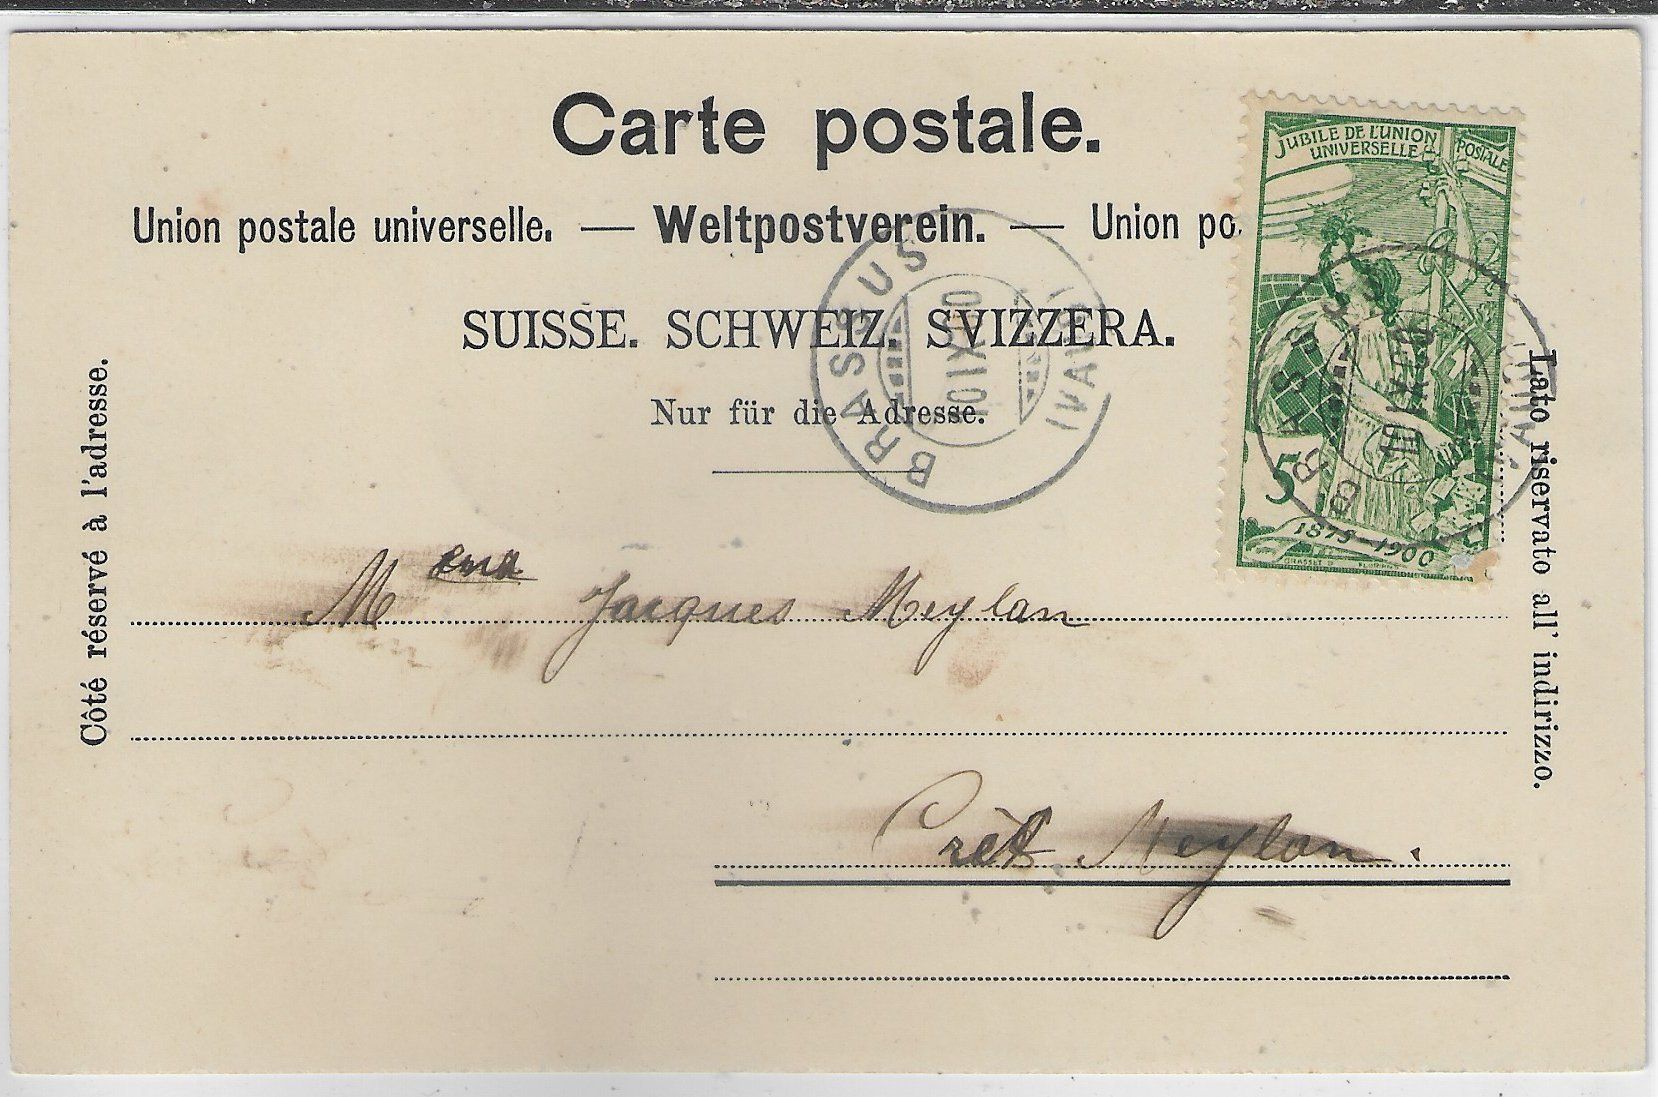 Carte postale.
Union postale universelle. — Weltpostverein. — Union po
SUISSE. SCHWEIZ. SVIZZERA.
Nur für die Adresse.
Côté réservé à l'adresse.
Lato riservato all' indirizzo.
JUBILE DE L'UNION POSTALE
UNIVERSELLE
5
1875–1900
GRASSET
BRASSUS
10 IX 00
(VAUD)
BRASSUS
10 IX 00
Jacques Meylan
Crêt Meylan.